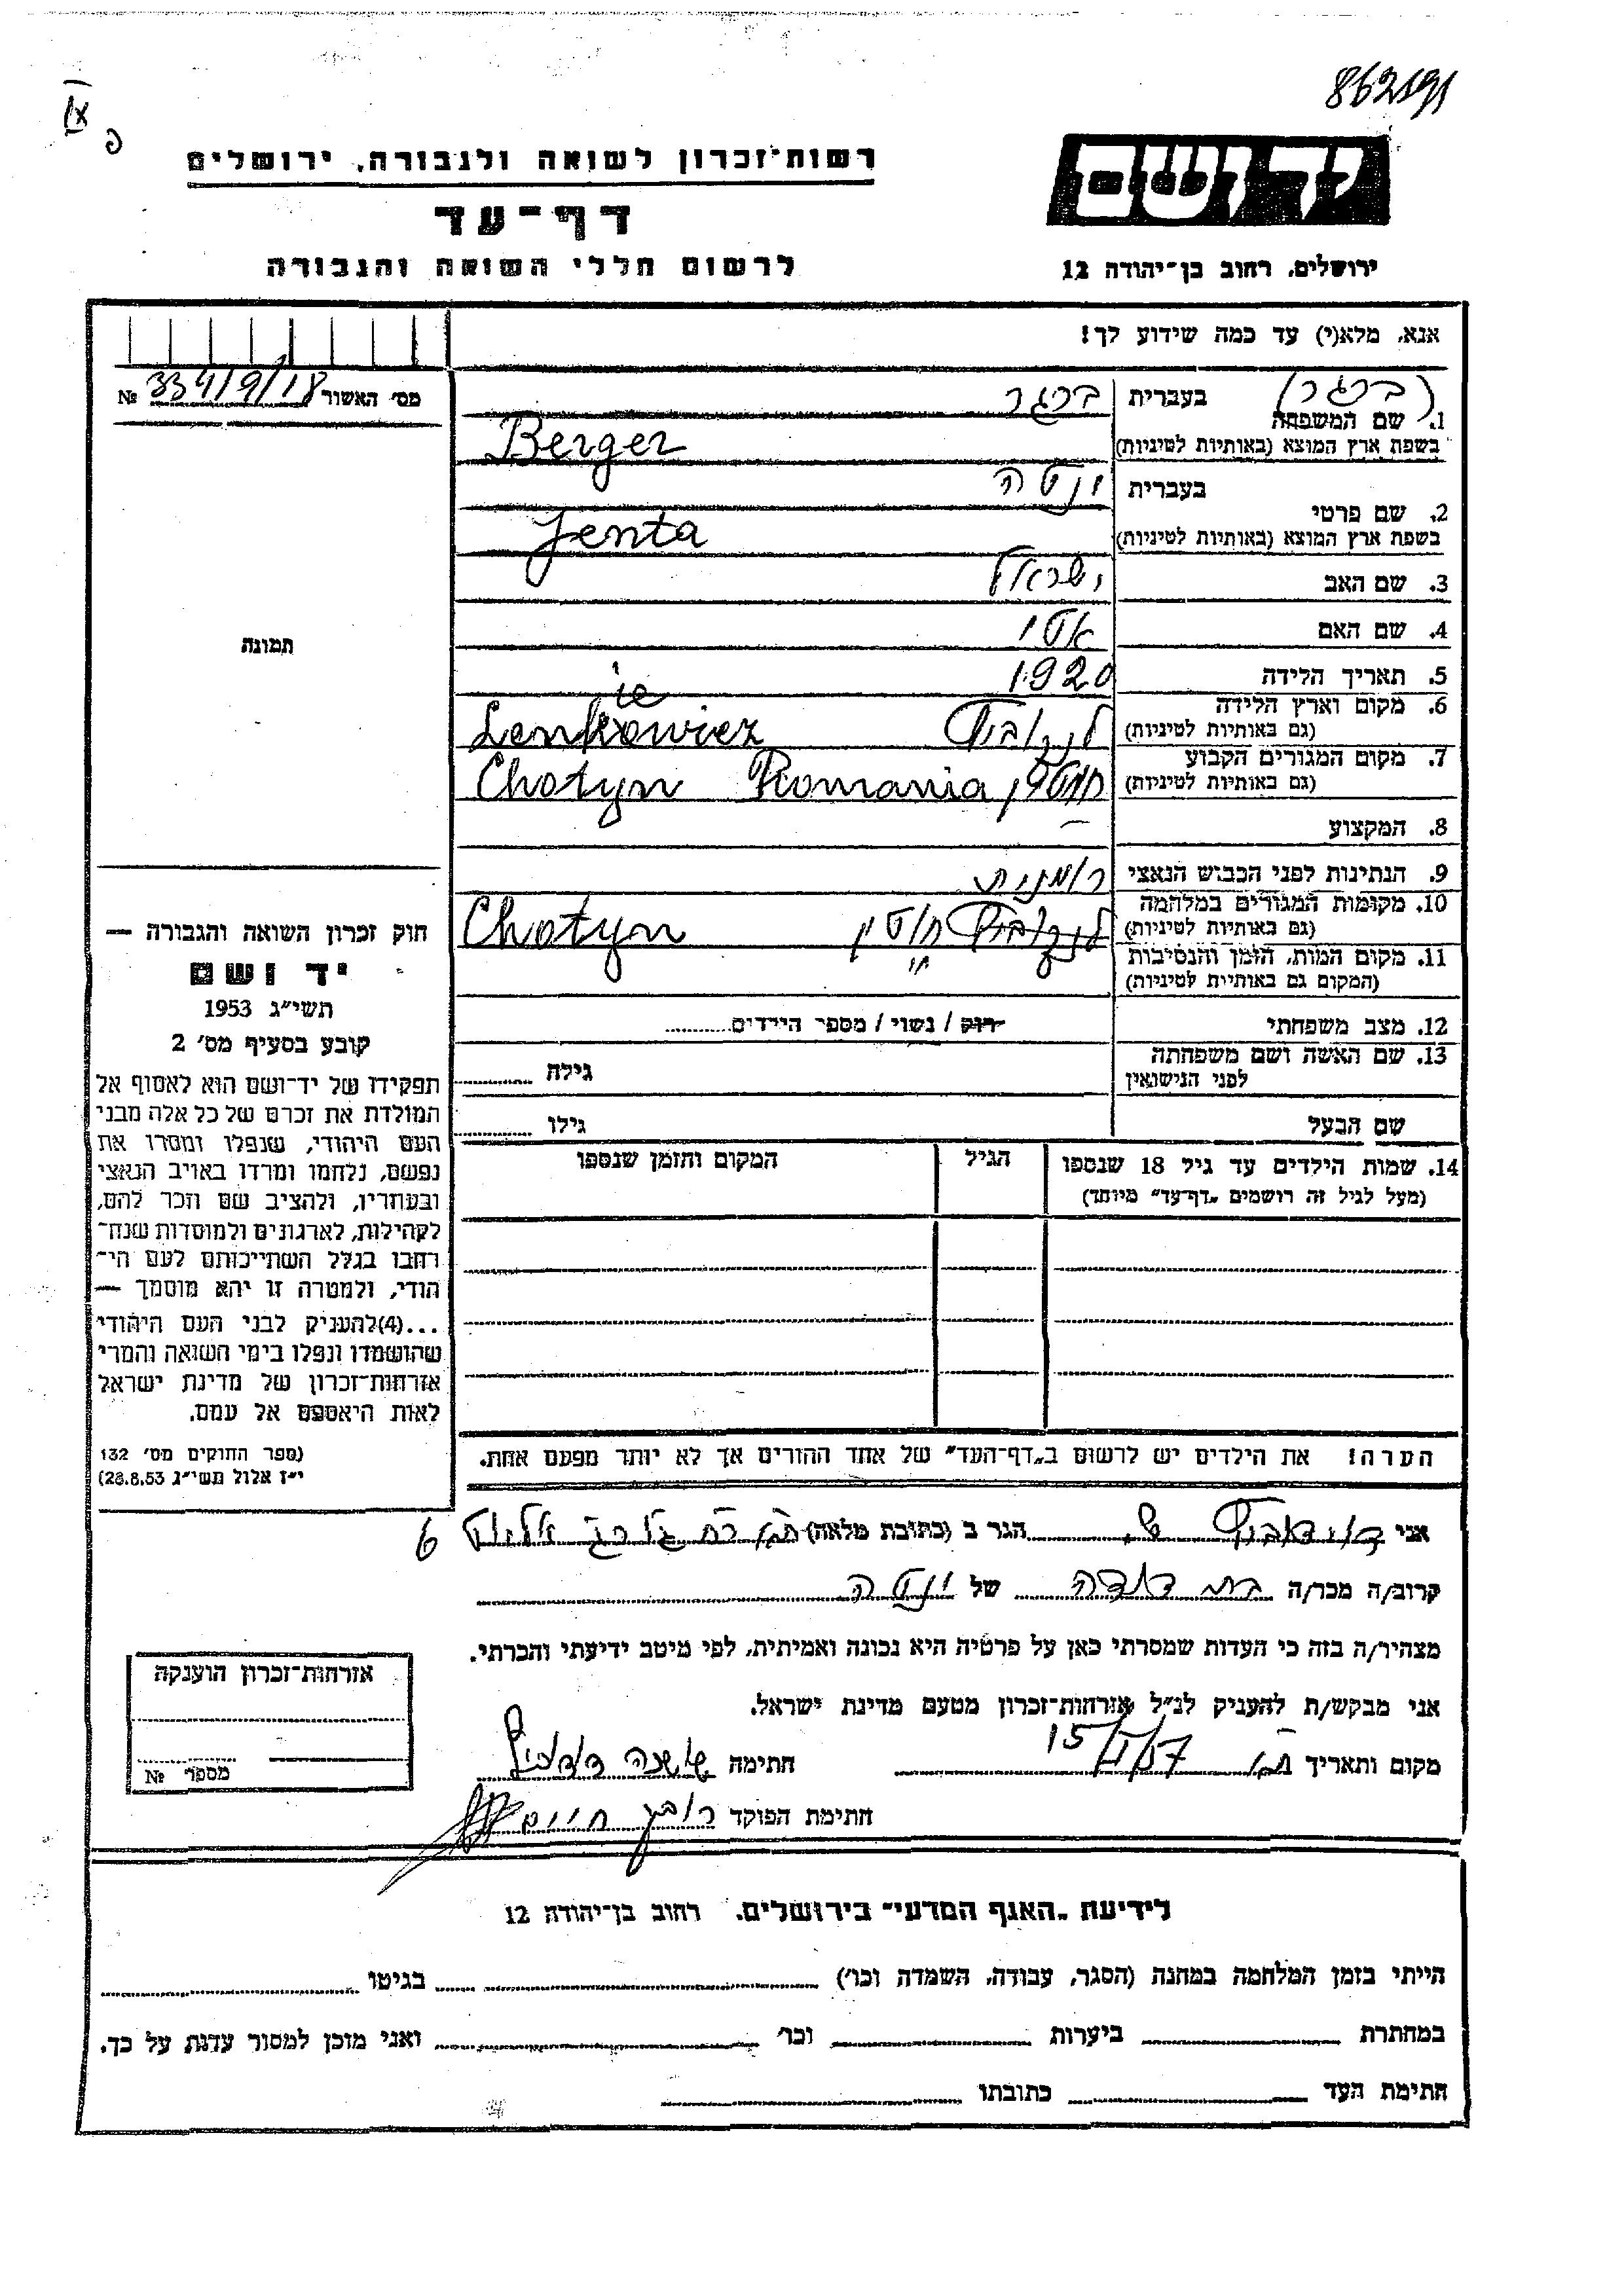 862191
IX
פ
יד ושם
רשות־זכרון לשואה ולגבורה, ירושלים
דף־עד
לרשום חללי השואה והגבורה
ירושלים, רחוב בן־יהודה 12
אנא, מלא(י) עד כמה שידוע לך!
מס' האשור 334/9/18 №
(ברגר)
1. שם המשפחה בעברית ברגר
בשפת ארץ המוצא (באותיות לטיניות) Berger
2. שם פרטי בעברית ינטה
בשפת ארץ המוצא (באותיות לטיניות) Jenta
3. שם האב ישראל
4. שם האם אטי
5. תאריך הלידה 1920
6. מקום וארץ הלידה
(גם באותיות לטיניות) Lenkowiez
7. מקום המגורים הקבוע
(גם באותיות לטיניות) חוטין Chotyn Romania
8. המקצוע —
9. הנתינות לפני הכבוש הנאצי רומנית
10. מקומות המגורים במלחמה
(גם באותיות לטיניות) חוטין Chotyn
11. מקום המות, הזמן והנסיבות
(המקום גם באותיות לטיניות)
12. מצב משפחתי רוק / נשוי / מספר הילדים
13. שם האשה ושם משפחתה
לפני הנישואין גילה
שם הבעל גילו
14. שמות הילדים עד גיל 18 שנספו הגיל המקום והזמן שנספו
(מעל לגיל זה רושמים „דף־עד" מיוחד)
הערה! את הילדים יש לרשום ב„דף־העד" של אחד ההורים אך לא יותר מפעם אחת.
תמונה
חוק זכרון השואה והגבורה —
יד ושם
תשי"ג 1953
קובע בסעיף מס' 2
תפקידו של יד־ושם הוא לאסוף אל
המולדת את זכרם של כל אלה מבני
העם היהודי, שנפלו ומסרו את
נפשם, נלחמו ומרדו באויב הנאצי
ובעוזריו, ולהציב שם וזכר להם,
לקהילות, לארגונים ולמוסדות שנח־
רבו בגלל השתייכותם לעם הי־
הודי, ולמטרה זו יהא מוסמך —
...(4)להעניק לבני העם היהודי
שהושמדו ונפלו בימי השואה והמרי
אזרחות־זכרון של מדינת ישראל
לאות היאספם אל עמם.
(ספר החוקים מס' 132
י"ז אלול תשי"ג 28.8.53)
אני דוידוביץ ש. הגר ב (כתובת מלאה) 6
קרוב/ה מכר/ה בת דודה של ינטה
מצהיר/ה בזה כי העדות שמסרתי כאן על פרטיה היא נכונה ואמיתית, לפי מיטב ידיעתי והכרתי.
אני מבקש/ת להעניק לנ"ל אזרחות־זכרון מטעם מדינת ישראל.
מקום ותאריך חתימה שושנה
חתימת הפוקד רובין חיים
אזרחות־זכרון הוענקה
מספר №
לידיעת „האגף המדעי" בירושלים, רחוב בן־יהודה 12
הייתי בזמן המלחמה במחנה (הסגר, עבודה, השמדה וכו') בגיטו
במחתרת ביערות וכו' ואני מוכן למסור עדות על כך.
חתימת העד כתובתו